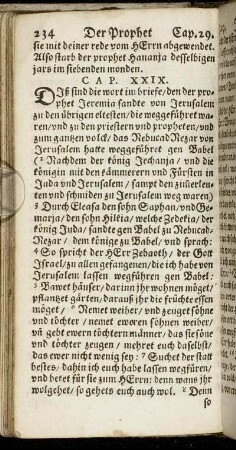 234 Der Prophet Cap. 29.
sie mit deiner rede vom HErrn abgewendet.
Also starb der prophet Hananja desselbigen
jars im siebenden monden.
CAP. XXIX.
DIß sind die wort im briefe / den der pro-
phet Jeremia sandte von Jerusalem
zu den übrigen eltesten / die weggeführet wa-
ren / und zu den priestern und propheten / und
zum gantzen volck / das NebucadNezar von
Jerusalem hatte weggeführet gen Babel
(² Nachdem der könig Jechanja / und die
königin mit den kämmerern und Fürsten in
Juda und Jerusalem / sampt den zimerleu-
ten und schmiden zu Jerusalem weg waren)
³ Durch Eleasa den sohn Saphan / und Ge-
marja / den sohn Hilkia / welche Zedekia / der
könig Juda / sandte gen Babel zu Nebucad-
Nezar / dem könige zu Babel / und sprach:
⁴ So spricht der HErr Zebaoth / der Gott
Israel / zu allen gefangenen / die ich habe von
Jerusalem lassen wegführen gen Babel:
⁵ Bawet häuser / darinn ihr wohnen möget /
pflantzet gärten / darauß ihr die früchte essen
möget / ⁶ Nemet weiber / und zeuget söhne
und töchter / nemet eweren söhnen weiber /
uñ gebt ewern töchtern männer / das sie söne
und töchter zeugen / mehret euch daselbst /
das ewer nicht wenig sey: ⁷ Suchet der statt
bestes / dahin ich euch habe lassen wegfüren /
und betet für sie zum HErrn: denn wañ ihr
wolgehet / so gehets euch auch wol. ⁸ Denn
so